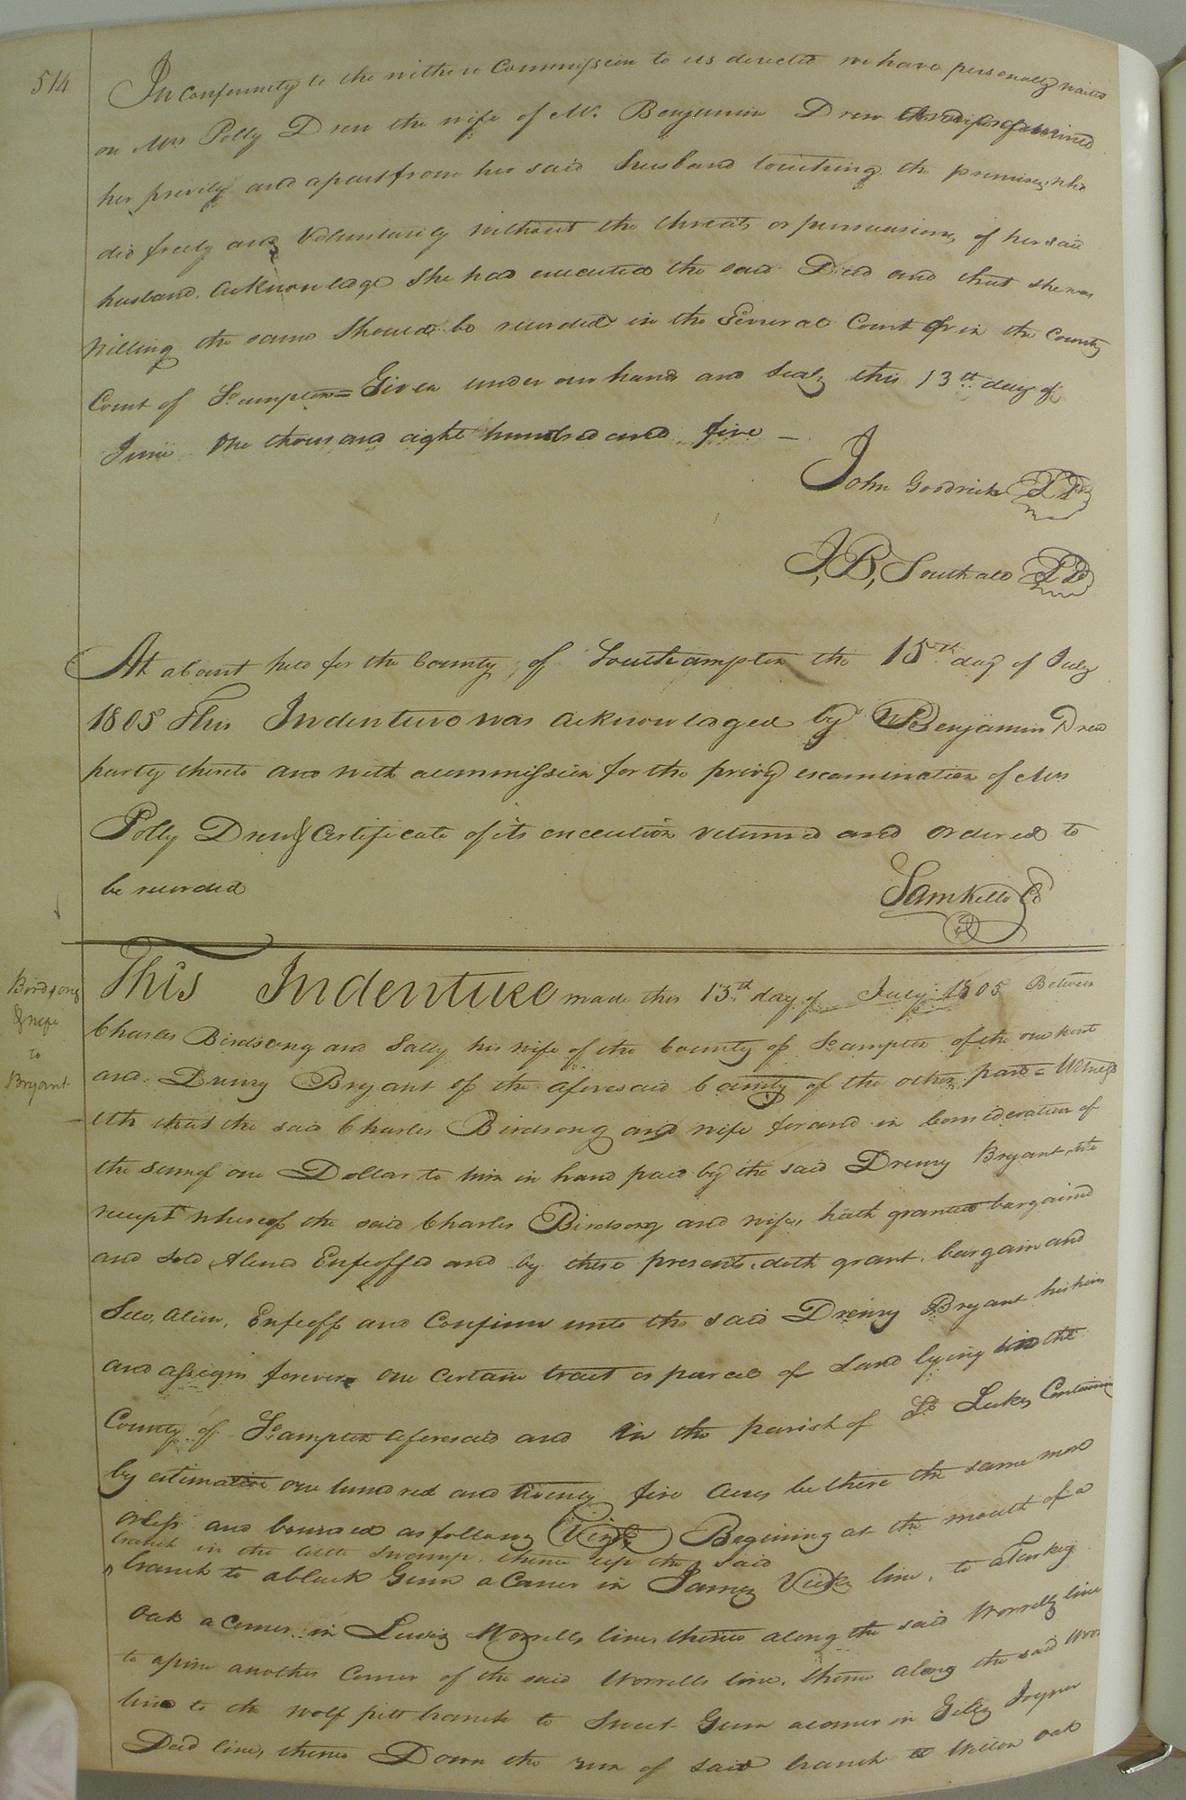 514
In conformity to the within Commission to us directed we have personally waited
on Mrs Polly Drew the wife of Mr. Benjamin Drew
her privily and apart from her said husband touching the premises, who
did freely and Voluntarily without the threats or persuasions of her said
husband. acknowledge She had executed the said Deed and that she was
willing the same Should be recorded in the General Court Or in the County
Court of So.ampton = Given under our hands and Seals this 13th day of
June One thousand eight hundred and five —
John Goodrich
J, B, Southall
At a Court held for the County of Southampton the 15th day of July
1805 This Indenture was acknowledged by Benjamin Drew
party thereto and with a commission for the privy examination of Mrs
Polly Drew & Certificate of its execution returned and ordered to
be recorded
Sam Kello
Birdsong
& wife
to
Bryant
This Indenture made this 15th day of July 1805 Between
Charles Birdsong and Sally his wife of the County of So.ampton of the one part
and Drewry Bryant of the aforesaid County of the other part = Witness
eth that the said Charles Birdsong and wife for and in Consideration of
the sum of one Dollar to him in hand paid by the said Drewry Bryant, the
receipt whereof the said Charles Birdsong and wife, hath granted bargained
and sold Aliend Enfeoffed and by these presents, doth grant, bargain and
Sell, alien, Enfeoff and Confirm unto the said Drewry Bryant his heirs
and assigns forever one certain tract or parcel of Land lying in the
County of So.ampton aforesaid and in the parish of St. Lukes Containing
by estimation one hundred and twenty five Acres be there the same more
or less and bounded as follows (Viz) Begining at the mouth of a
branch in the little swamp, thence up the said
branch to a black Gum a Corner in James Vicks line, to a Turkey
oak a corner in Lewis Worrells line, thence along the said Worrells line
to a pine another Corner of the said Worrells line, thence along the said Worr
line to the wolf pitt branch to Sweet Gum a corner in Gilly
Deed line, thence Down the run of said branch to White oak